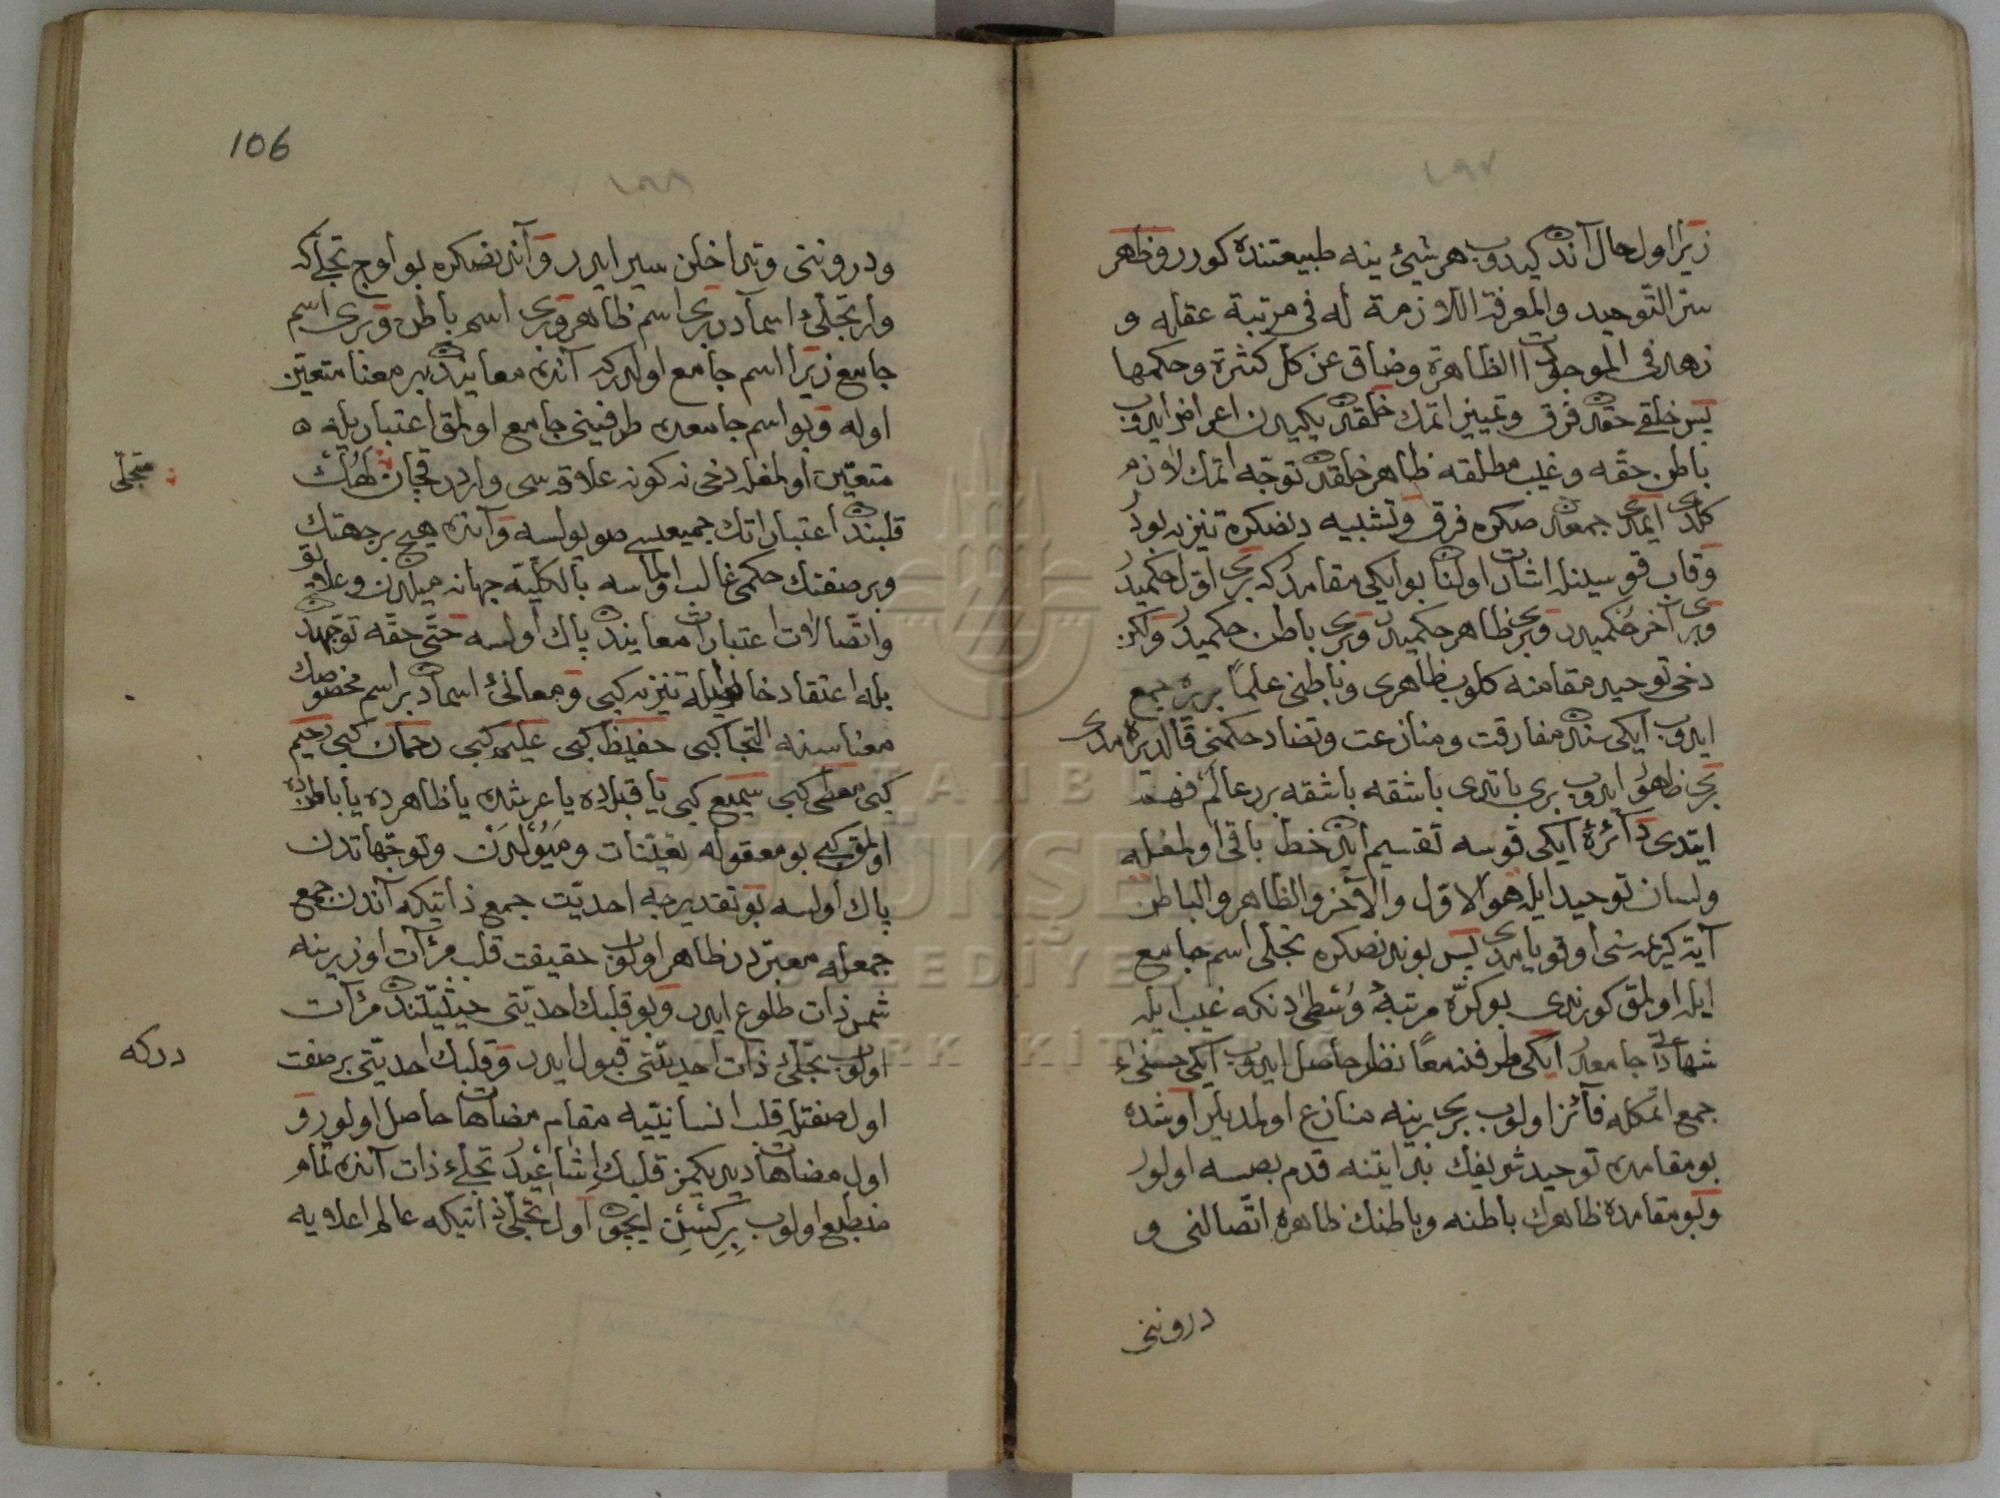 ١٩٧
زيرا اول حال آندن كيدوب هر شئ ينه طبيعتنده كورر و ظهر
ستر التوحيد والمعرفة اللازمة له فى مرتبة عقله و
زهد فى الموجودات الظاهرة وضاق عن كل كثرة وحكمها
پس خلقى حقدن فرق وتمييز اتمك خلقدن يكيدن اعراض ايدوب
باطن حقه وغيب مطلقه ظاهر خلقدن توجه اتمك لازم
كلدى ايمدى جمعدن صكره فرق وتشبيه دن صكره تنزيه بودر
وقاب قوسينله اشارت اولنان بو ايكى مقامدر كه برى اول حكميدر
وبرى آخر حكميدر وبرى ظاهر حكميدر وبرى باطن حكميدر ولكن
دخى توحيد مقامنه كلوب ظاهرى وباطنى علماً بريره جمع
ايدوب ايكىسندن مفارقت ومنازعت وتضاد حكمنى قالديره مدى
برى ظهور ايدوب برى باتدى باشقه باشقه برر عالم فهم
ايتدى دائره ايكى قوسه تقسيم ايدن خط باقى اولمغله
ولسان توحيد ايله هو الاول والآخر والظاهر والباطن
آية كريمه سنى اوقويامدى پس بوندن صكره تجلى اسم جامع
ايله اولمق كورندى بو كره مرتبۀ وسطى دنكه غيب ايله
شهادتى جامعدر ايكى طرفدن معاً نظر حاصل ايدوب ايكى حسنى
جمع اتمكله فائز اولوب برى برينه منازع اولمديلر اوشده
بو مقامدن توحيد شريفك بدايتنه قدم بصسه اولور
وبو مقامده ظاهرك باطنه وباطنك ظاهره اتصالنى و
درونن
106
١٩٨
ودروننى وتداخلن سير ايدر وآندن صكره بو اوج تجلى كه
واردر تجلئ اسمادر برى اسم ظاهر وبرى اسم باطن وبرى اسم
جامع زيرا اسم جامع اولدر كه آنده معانيدن بر معنا متعين
اوله وبو اسم جامعده طرفينى جامع اولمق اعتباريله
متعين اولمغله دخى نه كونه علاقه سى واردر قچان
قلبندن اعتباراتك جميعسى صويولسه وآنده هيچ بر جهتك
وبر صفتك حكمى غالب اولماسه بالكليه جهانه ميلدن وعلاقه
واتصالات اعتبارات معانيدن پاك اولسه حتى حقه توجهدن
بيله اعتقاد خاطريله تنزيه كبى ومعانئ اسمادن بر اسم مخصوصك
معناسنه التجا كبى حفيظ كبى عليم كبى رحمان كبى رحيم
كبى معطى كبى سميع كبى يا قبلده يا عرشده يا ظاهرده يا باطنده
اولمق كبى بو معقوله تعينات وميولدن وتوجهاتدن
پاك اولسه بو تقديرجه احديت جمع ذاتيكه آندن جمع
جمعله معبردر ظاهر اولوب حقيقت قلب مرآت اوزرينه
شمس ذات طلوع ايدر وبو قلبك احديتى حيثيتندن مرآت
اولوب تجلئ ذات احديتى قبول ايدر وقلبك احديتى بر صفت
اول صفتله قلب انسانيّيه مقام مضاهات حاصل اولور و
اول مضاهات ديديكمز قلبك اتساعيدر تجلئ ذات آنده تمام
منطبع اولوب بركشش ايچون اول تجلى ذاتيكه عالم اعلايه
متجلى
دركه